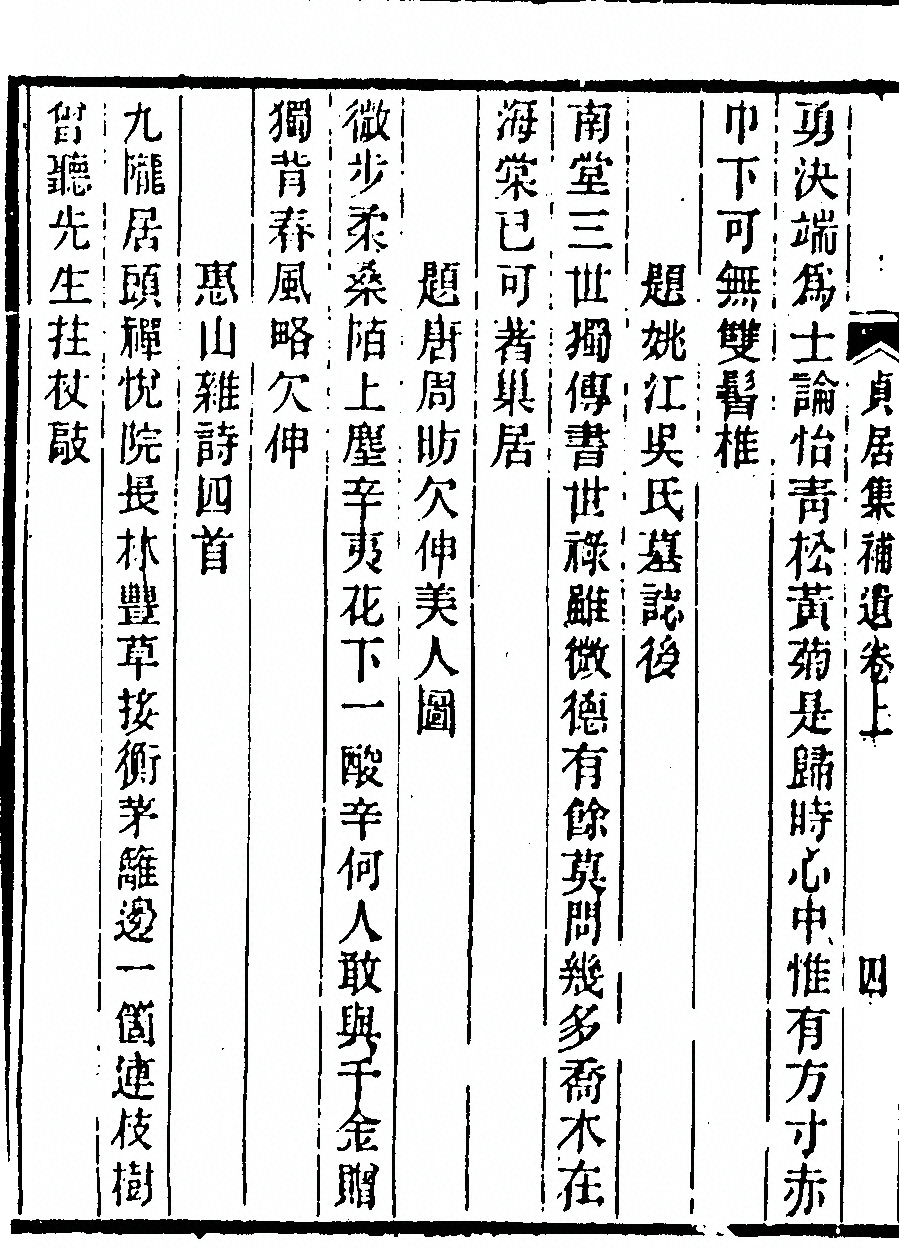 貞居集補遺卷上 四
勇決端爲士論怡青松黃菊是歸時心中惟有方寸赤
巾下可無雙髻椎
題姚江吳氏墓誌後
南堂三世獨傳書世祿雖微德有餘莫問幾多喬木在
海棠已可著巢居
題唐周昉欠伸美人圖
微步柔桑陌上塵辛夷花下一酸辛何人敢與千金贈
獨背春風略欠伸
惠山雜詩四首
九隴居頭禪悅院長林豐草接衡茅籬邊一箇連枝樹
曾聽先生拄杖敲